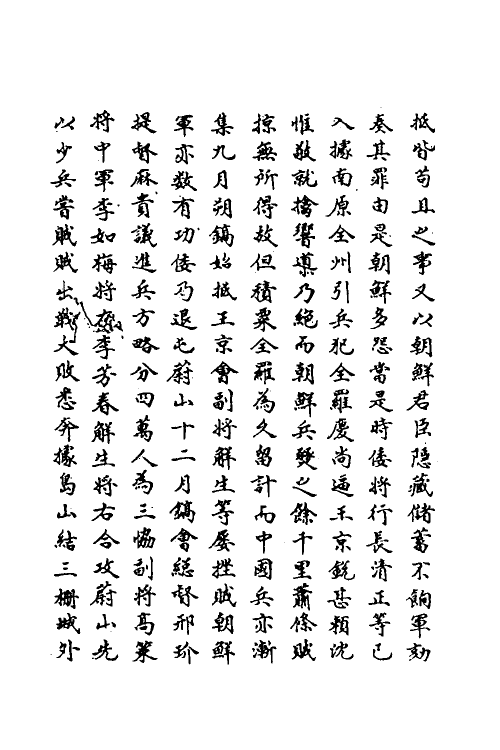 抵皆苟且之事又以朝鮮君臣隠藏儲蓄不餉軍劾
奏其罪由是朝鮮多怨當是時倭將行長清正等已
入據南原全州引兵犯全羅慶尚逼王京銳甚賴沈
惟敬就擒嚮導乃絕而朝鮮兵燹之餘千里蕭條賊
掠無所得故但積粟全羅為久留計而中國兵亦漸
集九月朔鎬始抵王京會副將解生等屡挫賊朝鮮
軍亦数有功倭乃退屯蔚山十二月鎬會總督邢玠
提督麻貴議進兵方略分四萬人為三協副將高策
將中軍李如梅將左李芳春解生將右合攻蔚山先
以少兵嘗賊賊出戰大敗悉奔據島山結三柵城外